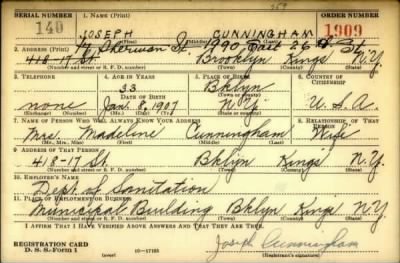 359
SERIAL NUMBER 1. NAME (Print) ORDER NUMBER
140 JOSEPH CUNNINGHAM 1909
(First) (Middle) (Last)
14 Sherman St. 1990 East 26th St.
2. ADDRESS (Print)
418-17 St. Brooklyn Kings N.Y.
(Number and street or R. F. D. number) (Town) (County) (State)
3. TELEPHONE 4. AGE IN YEARS 5. PLACE OF BIRTH 6. COUNTRY OF CITIZENSHIP
33 Bklyn
DATE OF BIRTH (Town or county)
none Jan. 8, 1907 N.Y. U.S.A.
(Exchange) (Number) (Mo.) (Day) (Yr.) (State or country)
7. NAME OF PERSON WHO WILL ALWAYS KNOW YOUR ADDRESS 8. RELATIONSHIP OF THAT PERSON
Mrs. Madeline Cunningham Wife
(Mr., Mrs., Miss) (First) (Middle) (Last)
9. ADDRESS OF THAT PERSON
418-17 St. Bklyn Kings N.Y.
(Number and street or R. F. D. number) (Town) (County) (State)
10. EMPLOYER'S NAME
Dept. of Sanitation
11. PLACE OF EMPLOYMENT OR BUSINESS
Municipal Building Bklyn Kings N.Y.
(Number and street or R. F. D. number) (Town) (County) (State)
I AFFIRM THAT I HAVE VERIFIED ABOVE ANSWERS AND THAT THEY ARE TRUE.
REGISTRATION CARD
D. S. S. Form 1 (over) Joseph Cunningham
(Registrant's signature)